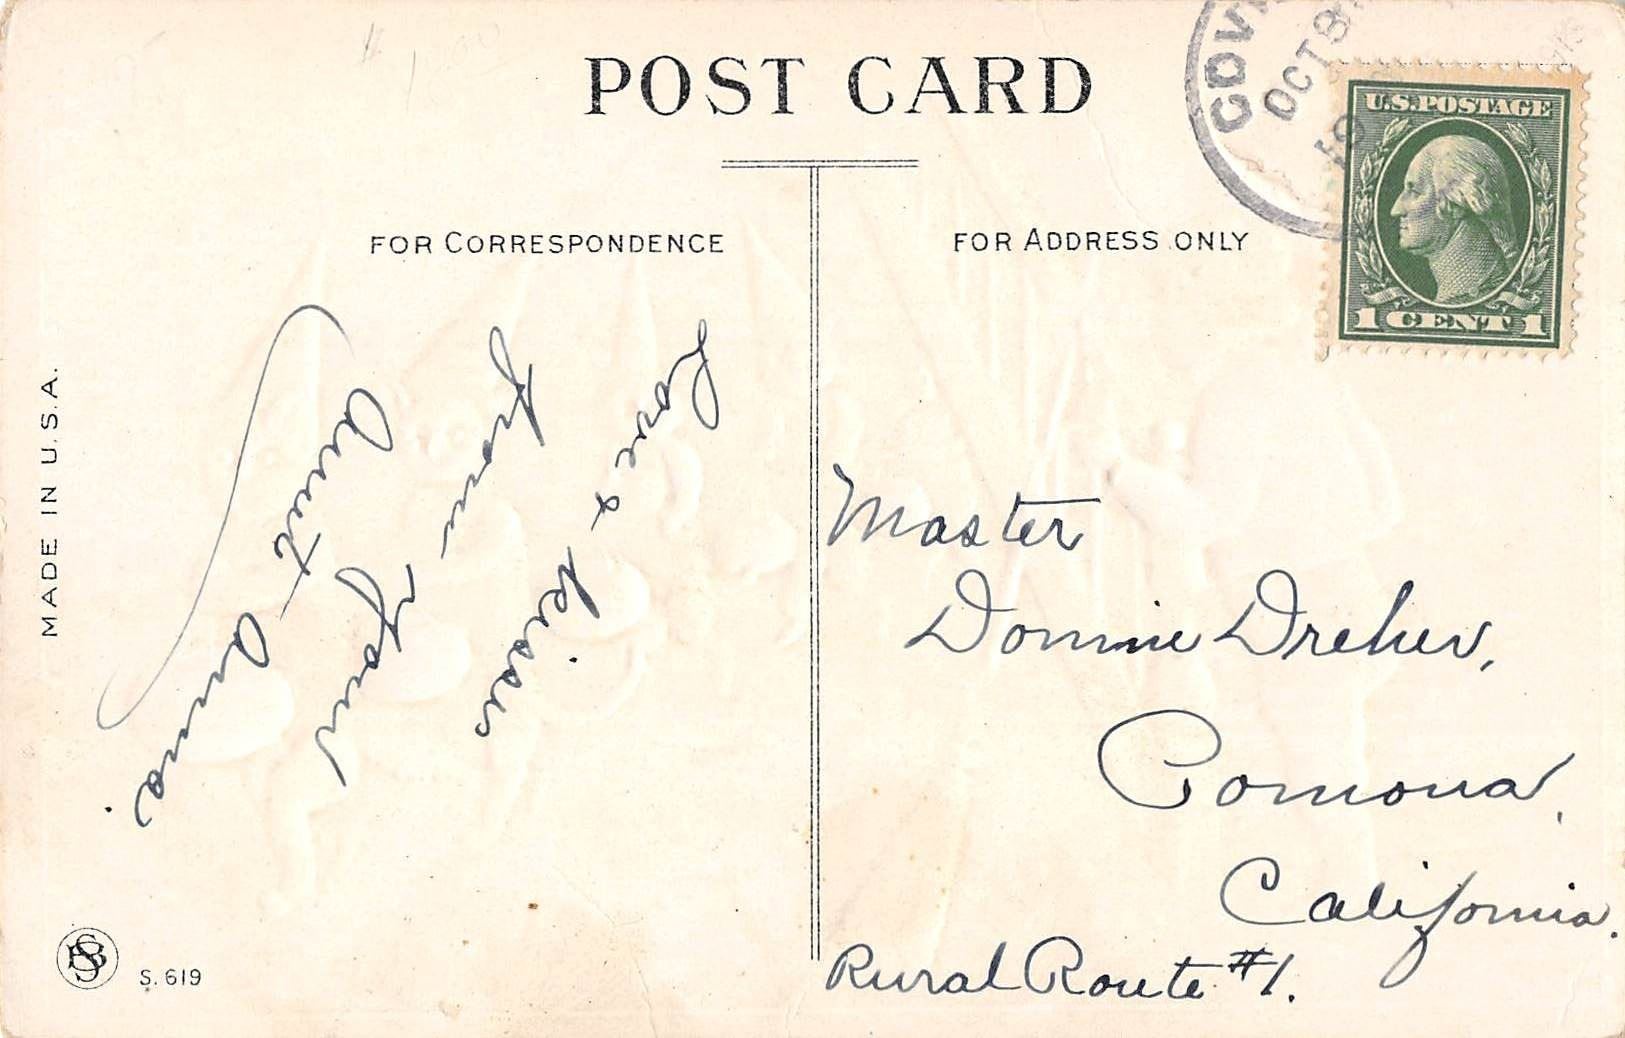 POST CARD
FOR CORRESPONDENCE
FOR ADDRESS ONLY
OCT 8
U.S.POSTAGE
1 CENT 1
MADE IN U.S.A.
Love & kisses
from your
Aunt Anna.
Master
Donnie Dreher,
Pomona,
California.
Rural Route #1.
S. 619